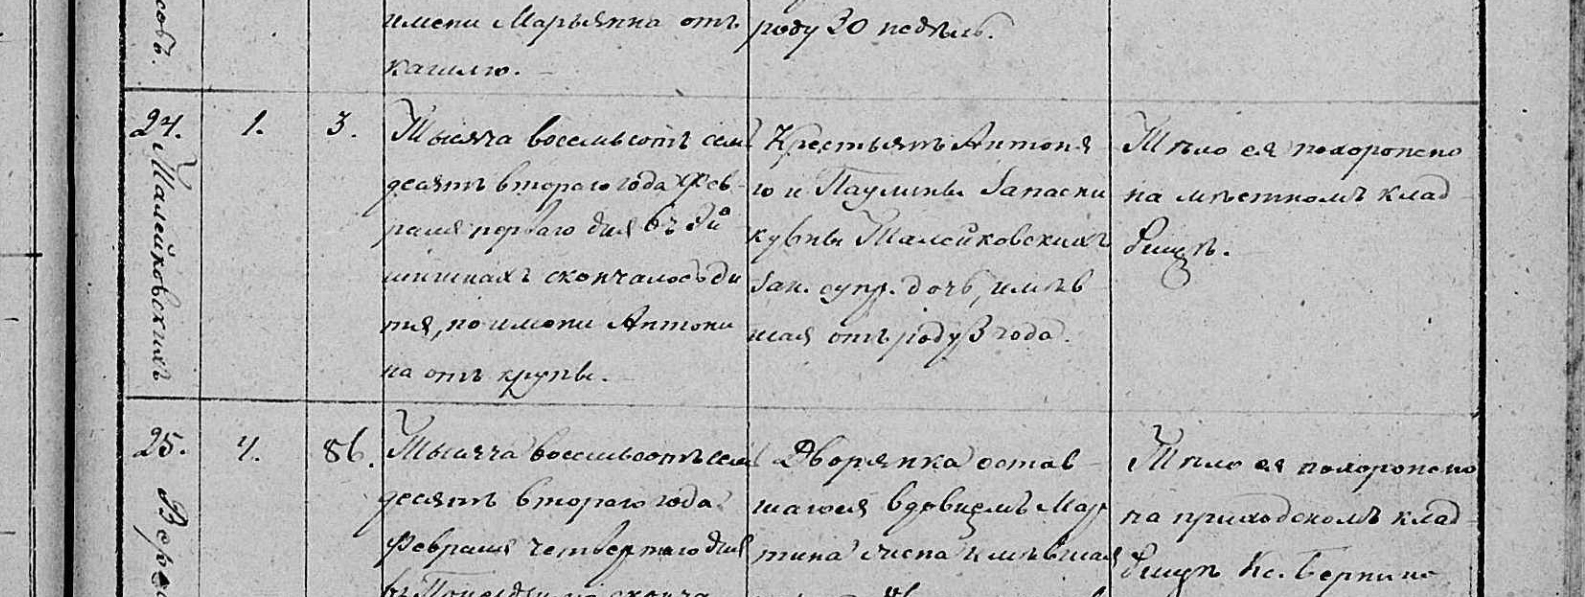 имени Марьянна отъ
кашлю.
роду 30 недѣль.
24.
Талейковскихъ
1.
3.
Тысяча восемьсотъ семь
десятъ втораго года Фев
раля перваго дня въ
скончалось ди
тя, по имени Антони
на отъ крупы.
Крестьянъ Антоня
го и Паулины
Талейковскихъ
зак. супр. дочь, имѣв
шая отъ роду 3 года.
Тѣло ея похоронено
на мѣстномъ клад
бищѣ.
25.
4.
86.
Тысяча восемьсотъ семь
десятъ втораго года
Февраля четвертаго дня
Дворянка остав
шаяся вдовъ Мар
тина имѣвшая
Тѣло ея похоронено
на приходскомъ клад
бищѣ Кс.